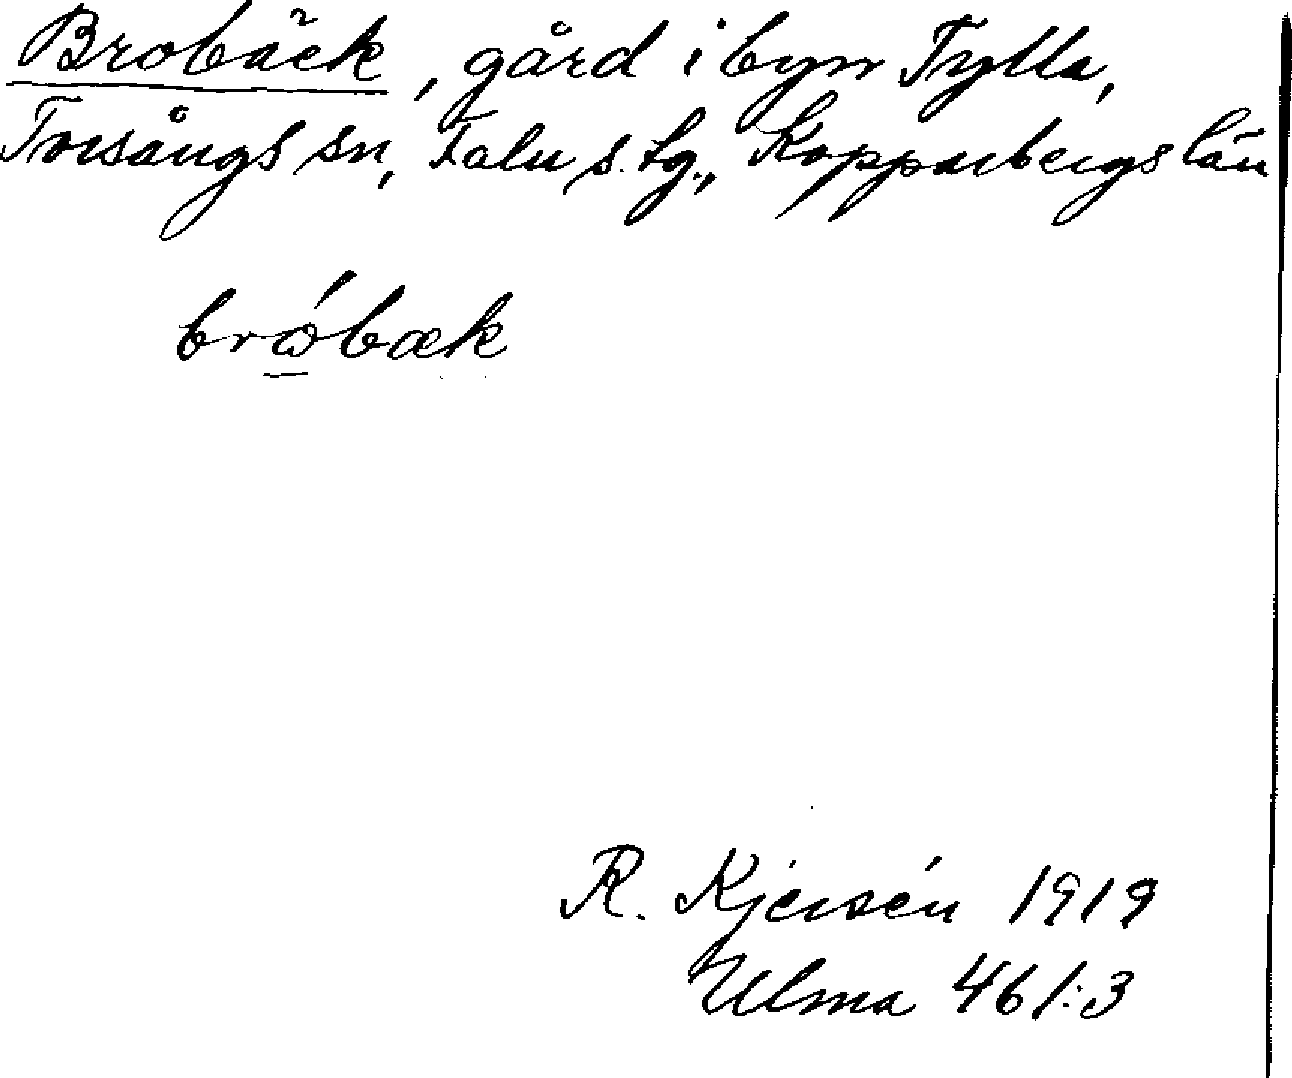 Brobäck, gård i byn Tylla,
Torsångs sn, Falu s. tg., Kopparbergs län
brώbæk
R. Kjersén 1919
Ulma 461:3